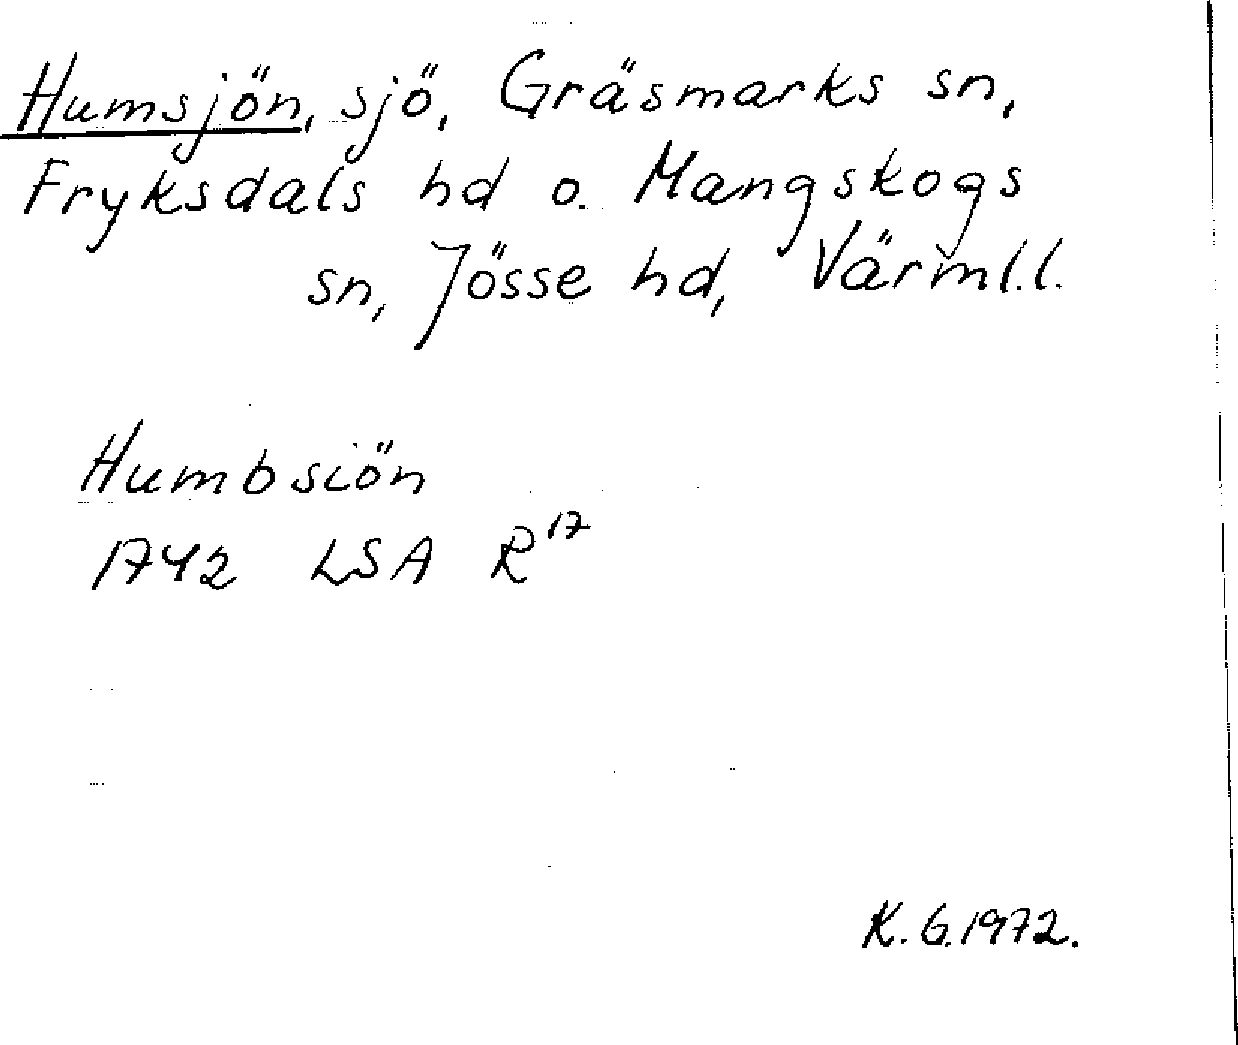 Humsjön, sjö, Gräsmarks sn,
Fryksdals hd o. Mangskogs
sn, Jösse hd, Värml.l.
Humbsiön
1742 LSA R¹⁷
K.G.1972.